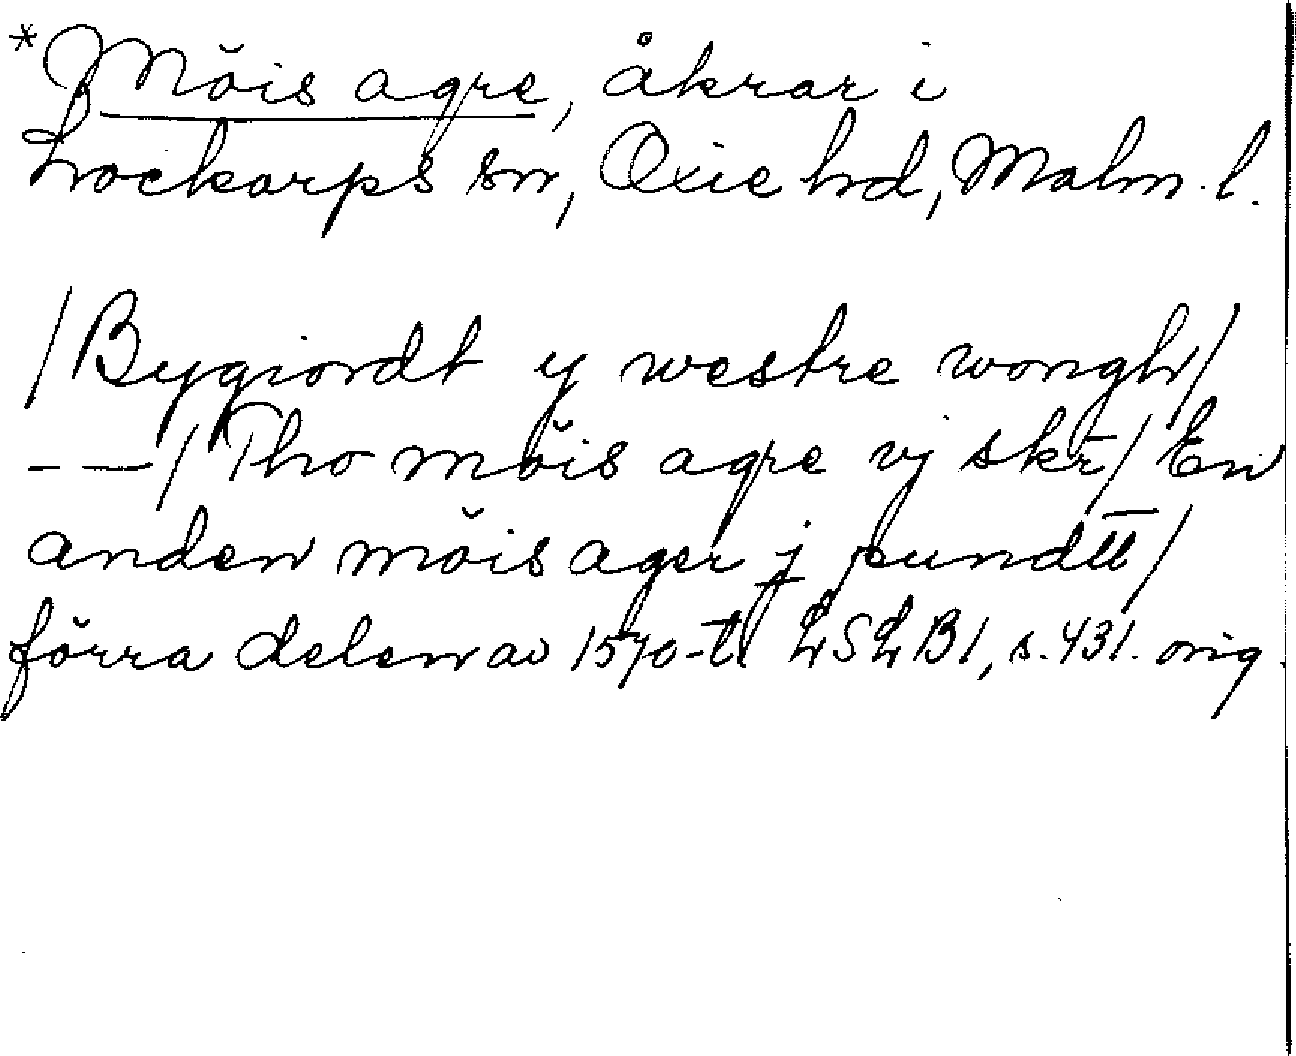 *Möis agre, åkrar i
Lockarps sn, Oxie hd, Malm. l.
/Bygiordt y westre wongh/
- — / Tho möis agre vj skr̄/ En
anden möis ager j pundtt/
förra delen av 1570-t. LSLB1, s. 431. orig.